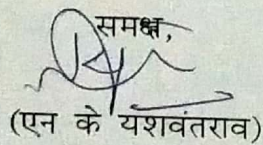 समक्ष,
(एन के यशवंतराव)